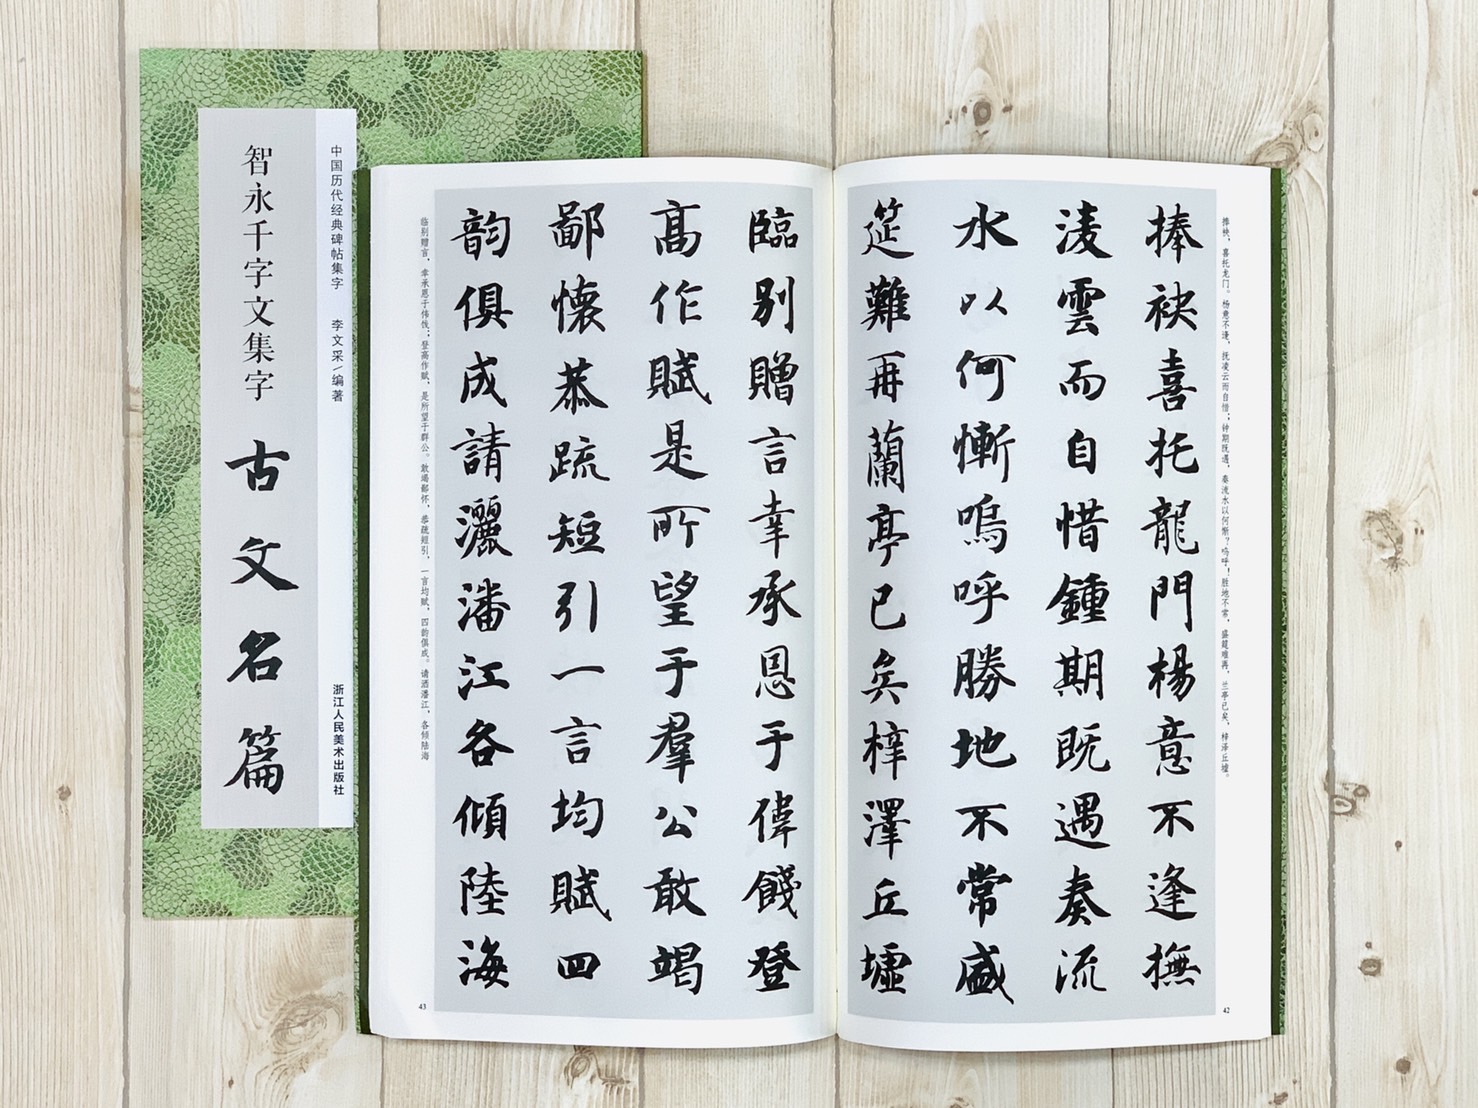 中国历代经典碑帖集字 李文采/编著
浙江人民美术出版社
智永千字文集字 古文名篇
捧袂，喜托龙门。杨意不逢，抚凌云而自惜；钟期既遇，奏流水以何惭？呜呼！胜地不常，盛筵难再，兰亭已矣，梓泽丘墟。
捧袂喜托龍門楊意不逢撫
淩雲而自惜鍾期既遇奏流
水以何慚嗚呼勝地不常盛
筵難再蘭亭已矣梓澤丘墟
42
臨別贈言幸承恩于偉餞登
高作賦是所望于羣公敢竭
鄙懷恭疏短引一言均賦四
韵俱成請灑潘江各傾陸海
临别赠言，幸承恩于伟饯；登高作赋，是所望于群公。敢竭鄙怀，恭疏短引，一言均赋，四韵俱成。请洒潘江，各倾陆海
43